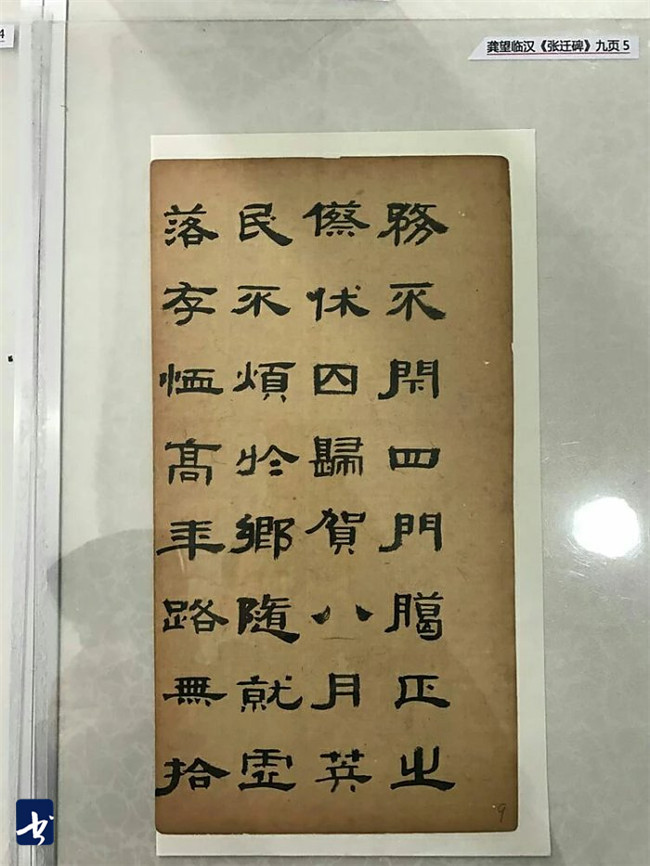 4
龚望临汉《张迁碑》九页 5
務不閑四門臈正之
僚休囚歸賀八月筭
民不煩於鄉隨就虛
落存恤高年路無拾
9